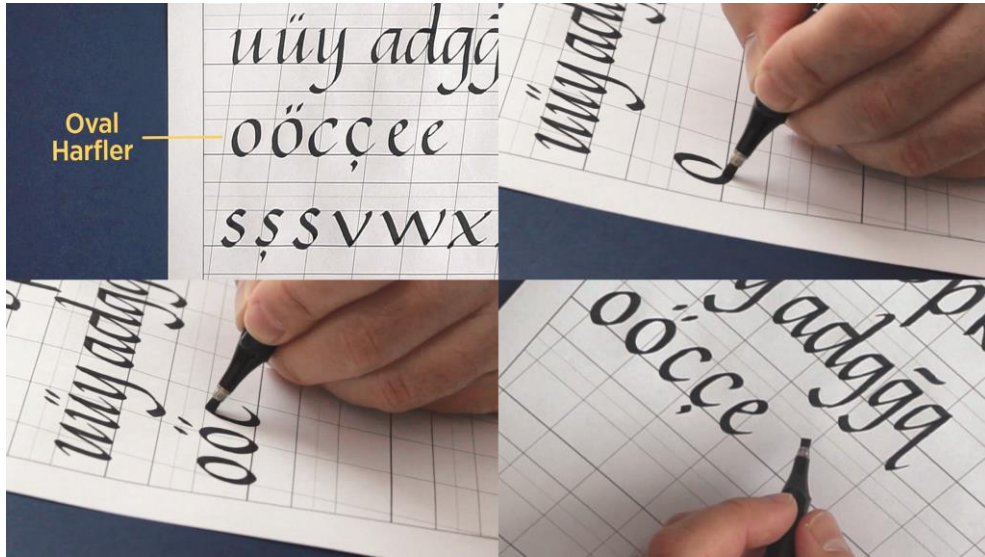 uüy adgğ
Oval
Harfler
oöcçee
sşsvwx
uüyad
o
uüyadg
oöc
yadgğq
oöcçe